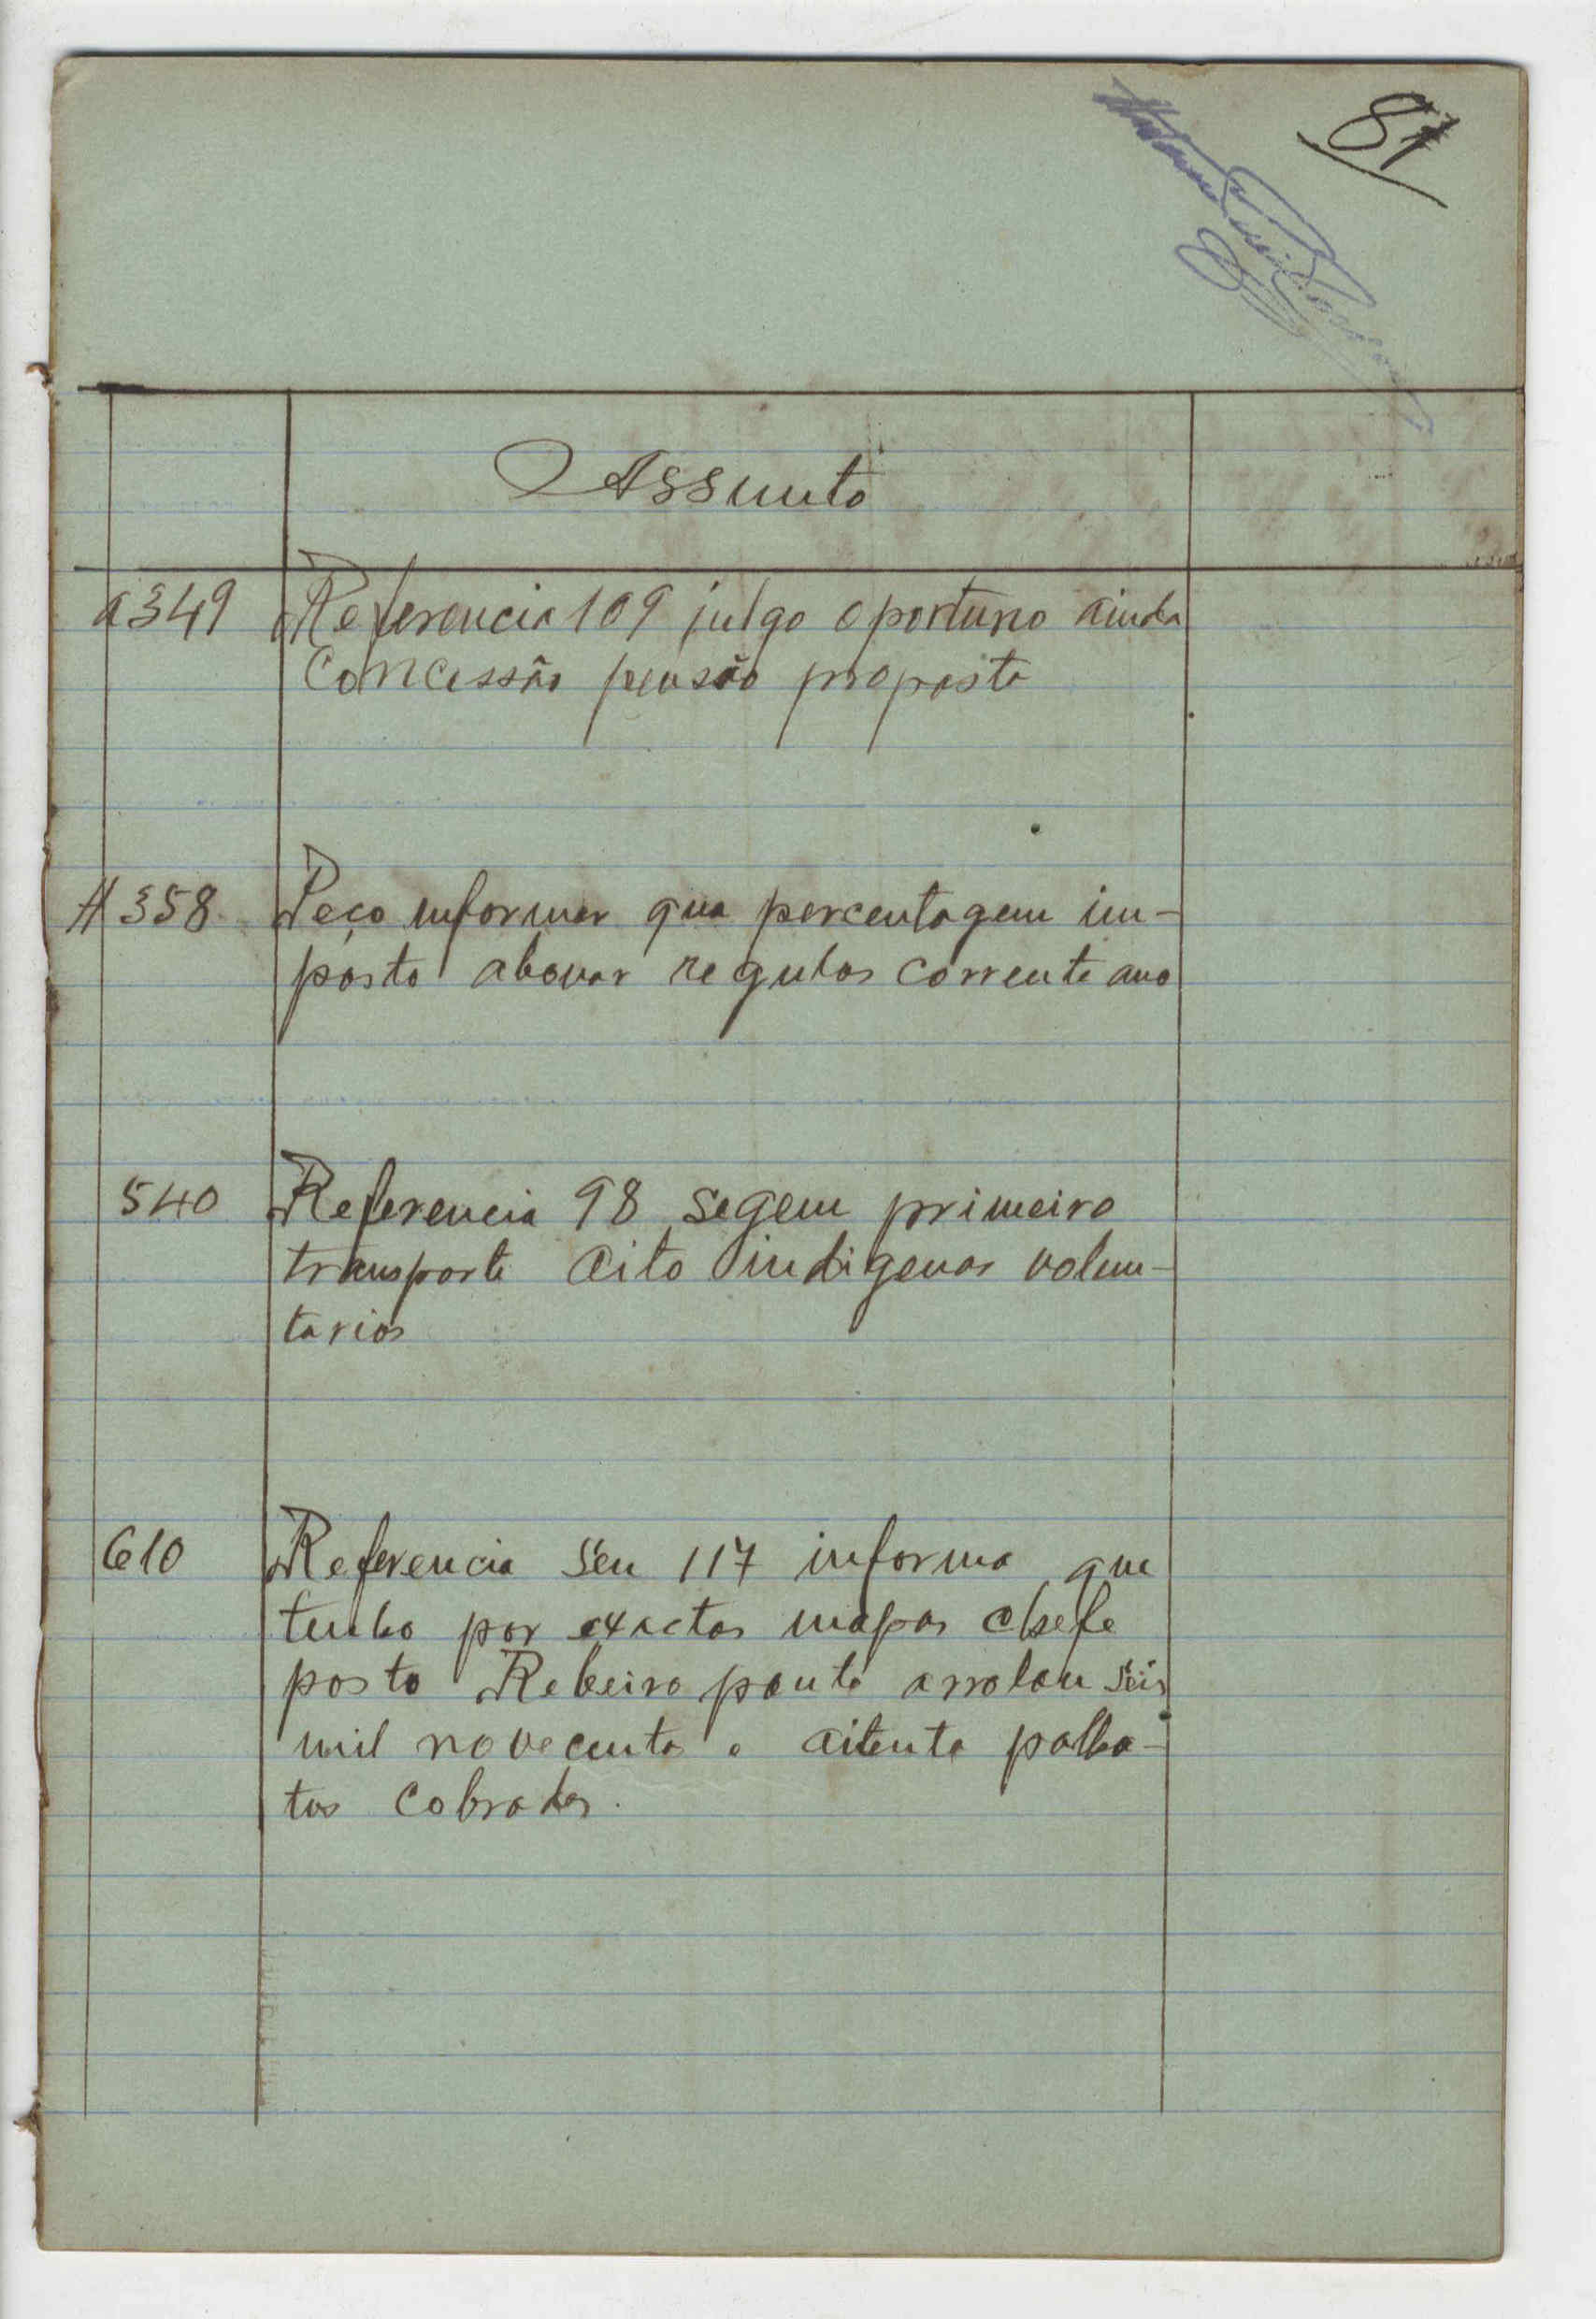 81
Assunto
349
Referencia 109 julgo oportuno ainda
Concessão pensão proposta
358
Peço informar que percentagem im-
posto abonar regulos corrente ano
540
Referencia 98 segem primeiro
transporte oito indigenas volun-
tarios
610
Referencia seu 117 informo que
tenho por exactos mapas chefe
posto Rebeiro ponto arrolou seis
mil novecentos e oitenta palho-
tas cobradas.